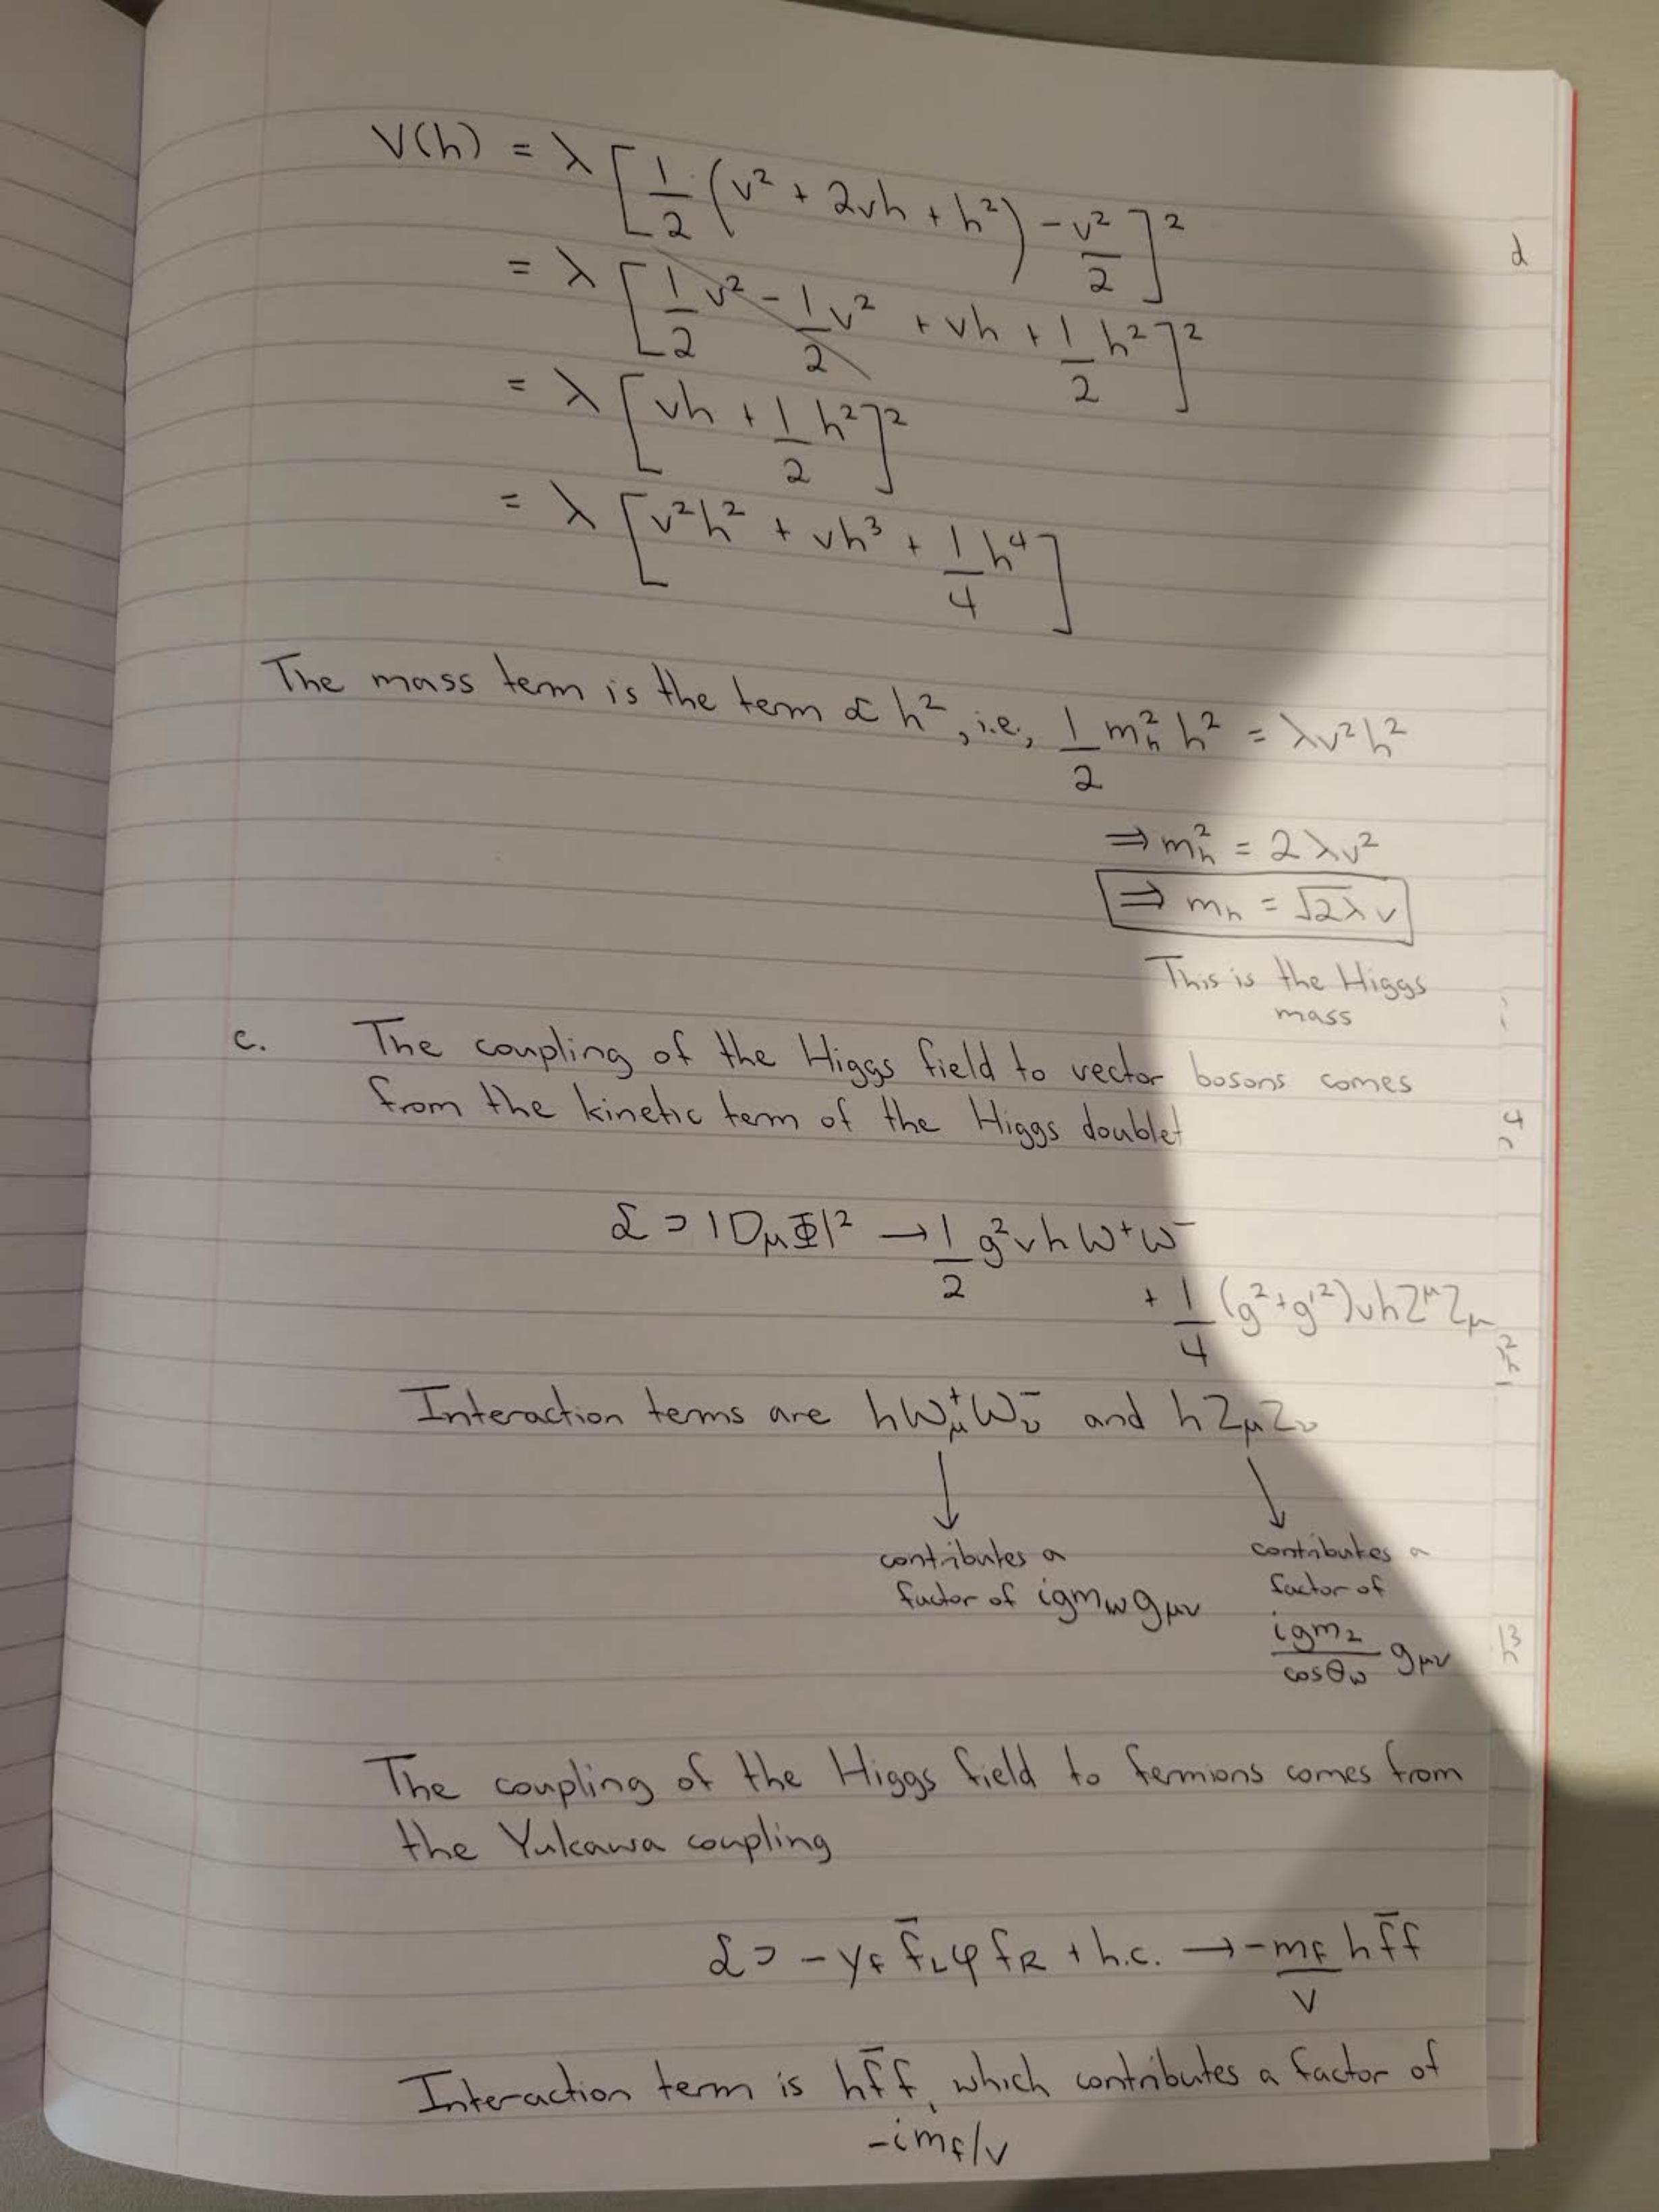 V(h) = λ [ 1/2 (v² + 2vh + h²) - v²/2 ]²
= λ [ 1/2 v² - 1/2 v² + vh + 1/2 h² ]²
= λ [ vh + 1/2 h² ]²
= λ [ v²h² + vh³ + 1/4 h⁴ ]
The mass term is the term ∝ h², i.e., 1/2 m_h² h² = λv²h²
⇒ m_h² = 2λv²
⇒ m_h = √2λ v
This is the Higgs
mass
c. The coupling of the Higgs field to vector bosons comes
from the kinetic term of the Higgs doublet
ℒ ⊃ |D_μ Φ|² → 1/2 g²vh W⁺W⁻
+ 1/4 (g²+g'²)vhZ^μ Z_μ
Interaction terms are hW_μ⁺W_ν⁻ and hZ_μZ_ν
contributes a
factor of igm_W g_μν
contributes a
factor of
igm_Z/cosθ_W g_μν
The coupling of the Higgs field to fermions comes from
the Yukawa coupling
ℒ ⊃ -y_f f̄_L φ f_R + h.c. → -m_f/v h f̄f
Interaction term is hf̄f, which contributes a factor of
-im_f/v